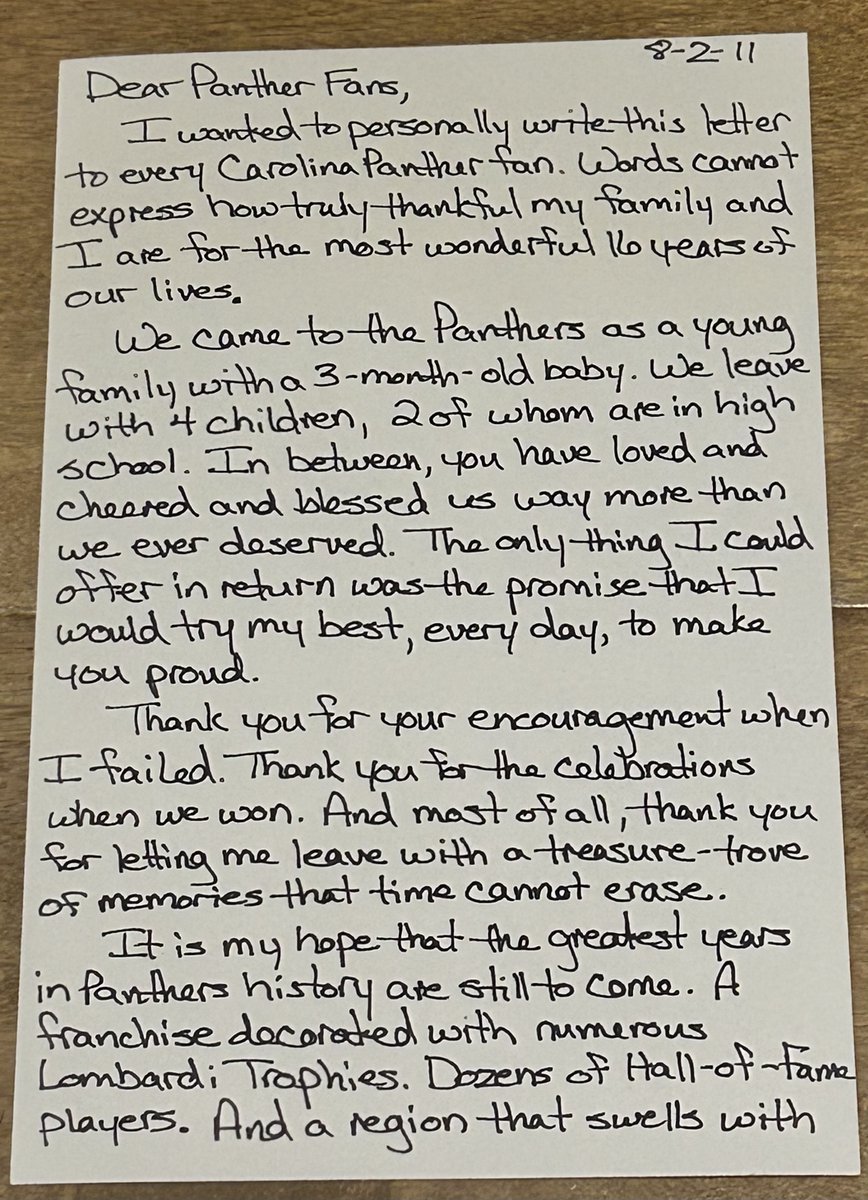 8-2-11
Dear Panther Fans,
I wanted to personally write this letter
to every Carolina Panther fan. Words cannot
express how truly thankful my family and
I are for the most wonderful 16 years of
our lives.
We came to the Panthers as a young
family with a 3-month-old baby. We leave
with 4 children, 2 of whom are in high
school. In between, you have loved and
cheered and blessed us way more than
we ever deserved. The only thing I could
offer in return was the promise that I
would try my best, every day, to make
you proud.
Thank you for your encouragement when
I failed. Thank you for the celebrations
when we won. And most of all, thank you
for letting me leave with a treasure-trove
of memories that time cannot erase.
It is my hope that the greatest years
in Panthers history are still to come. A
franchise decorated with numerous
Lombardi Trophies. Dozens of Hall-of-Fame
players. And a region that swells with